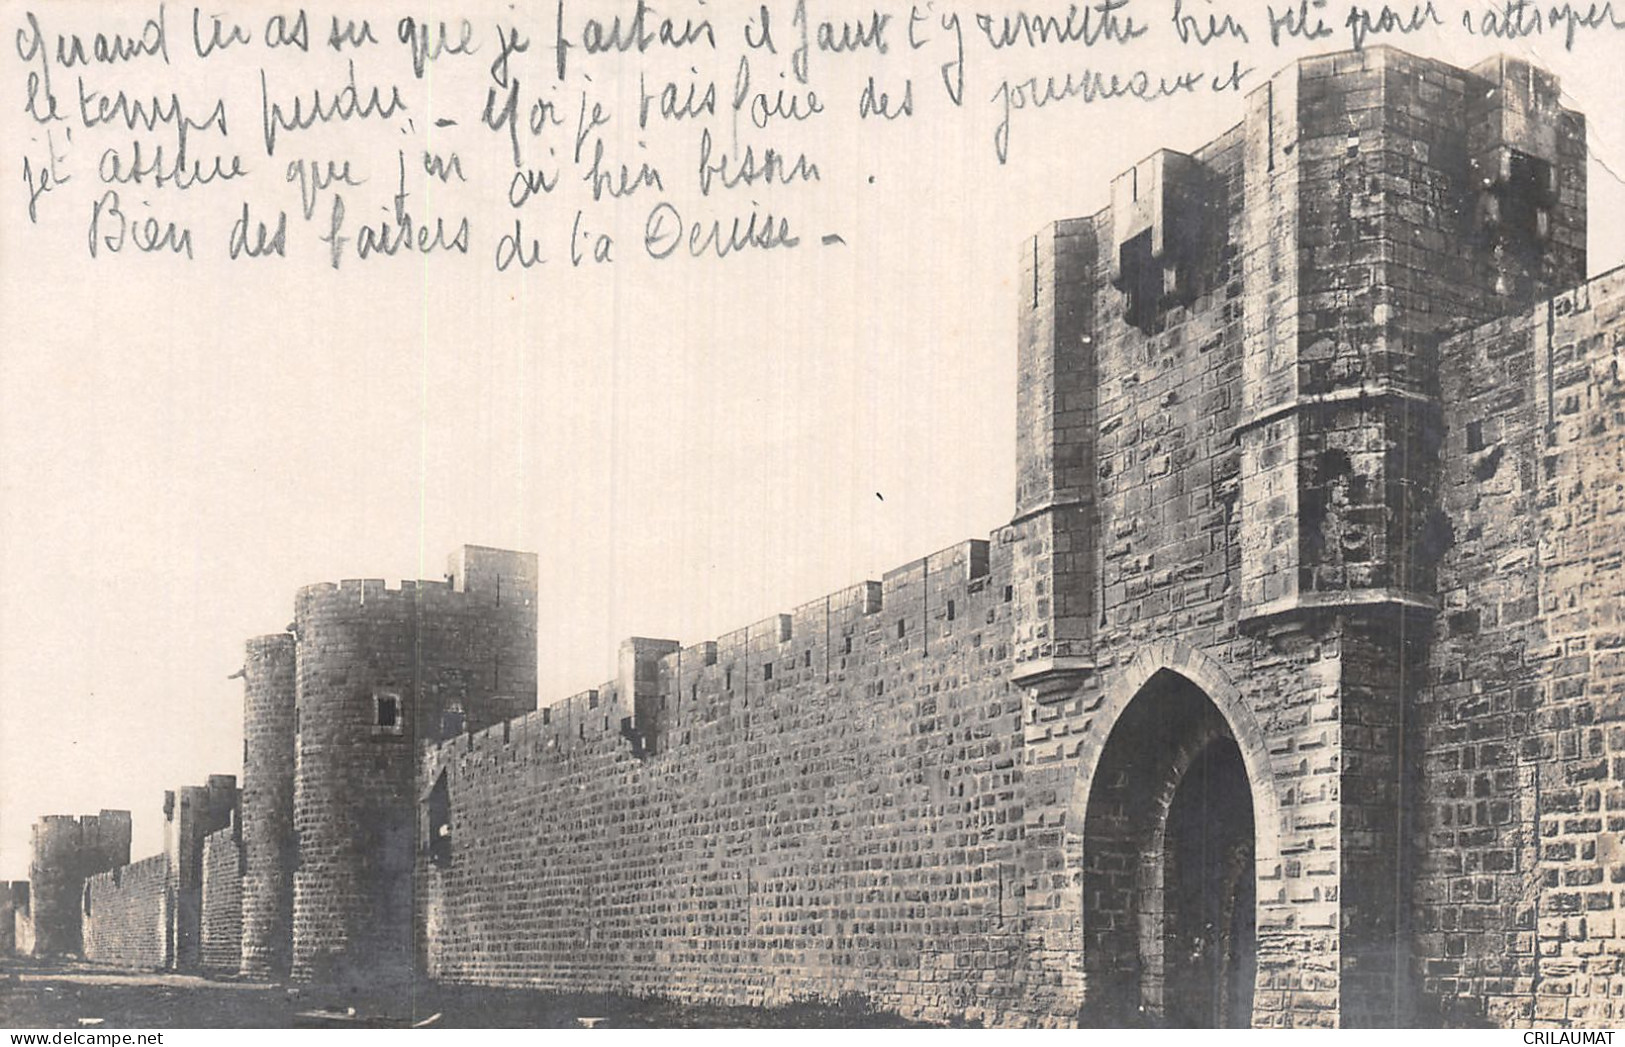 Quand tu as su que je partais il faut t'y remettre bien vite pour rattraper
le temps perdu. - Moi je vais faire des journeaux et
je t'assure que j'en ai bien besoin.
Bien des baisers de ta Denise -
Delcampe.net
CRILAUMAT